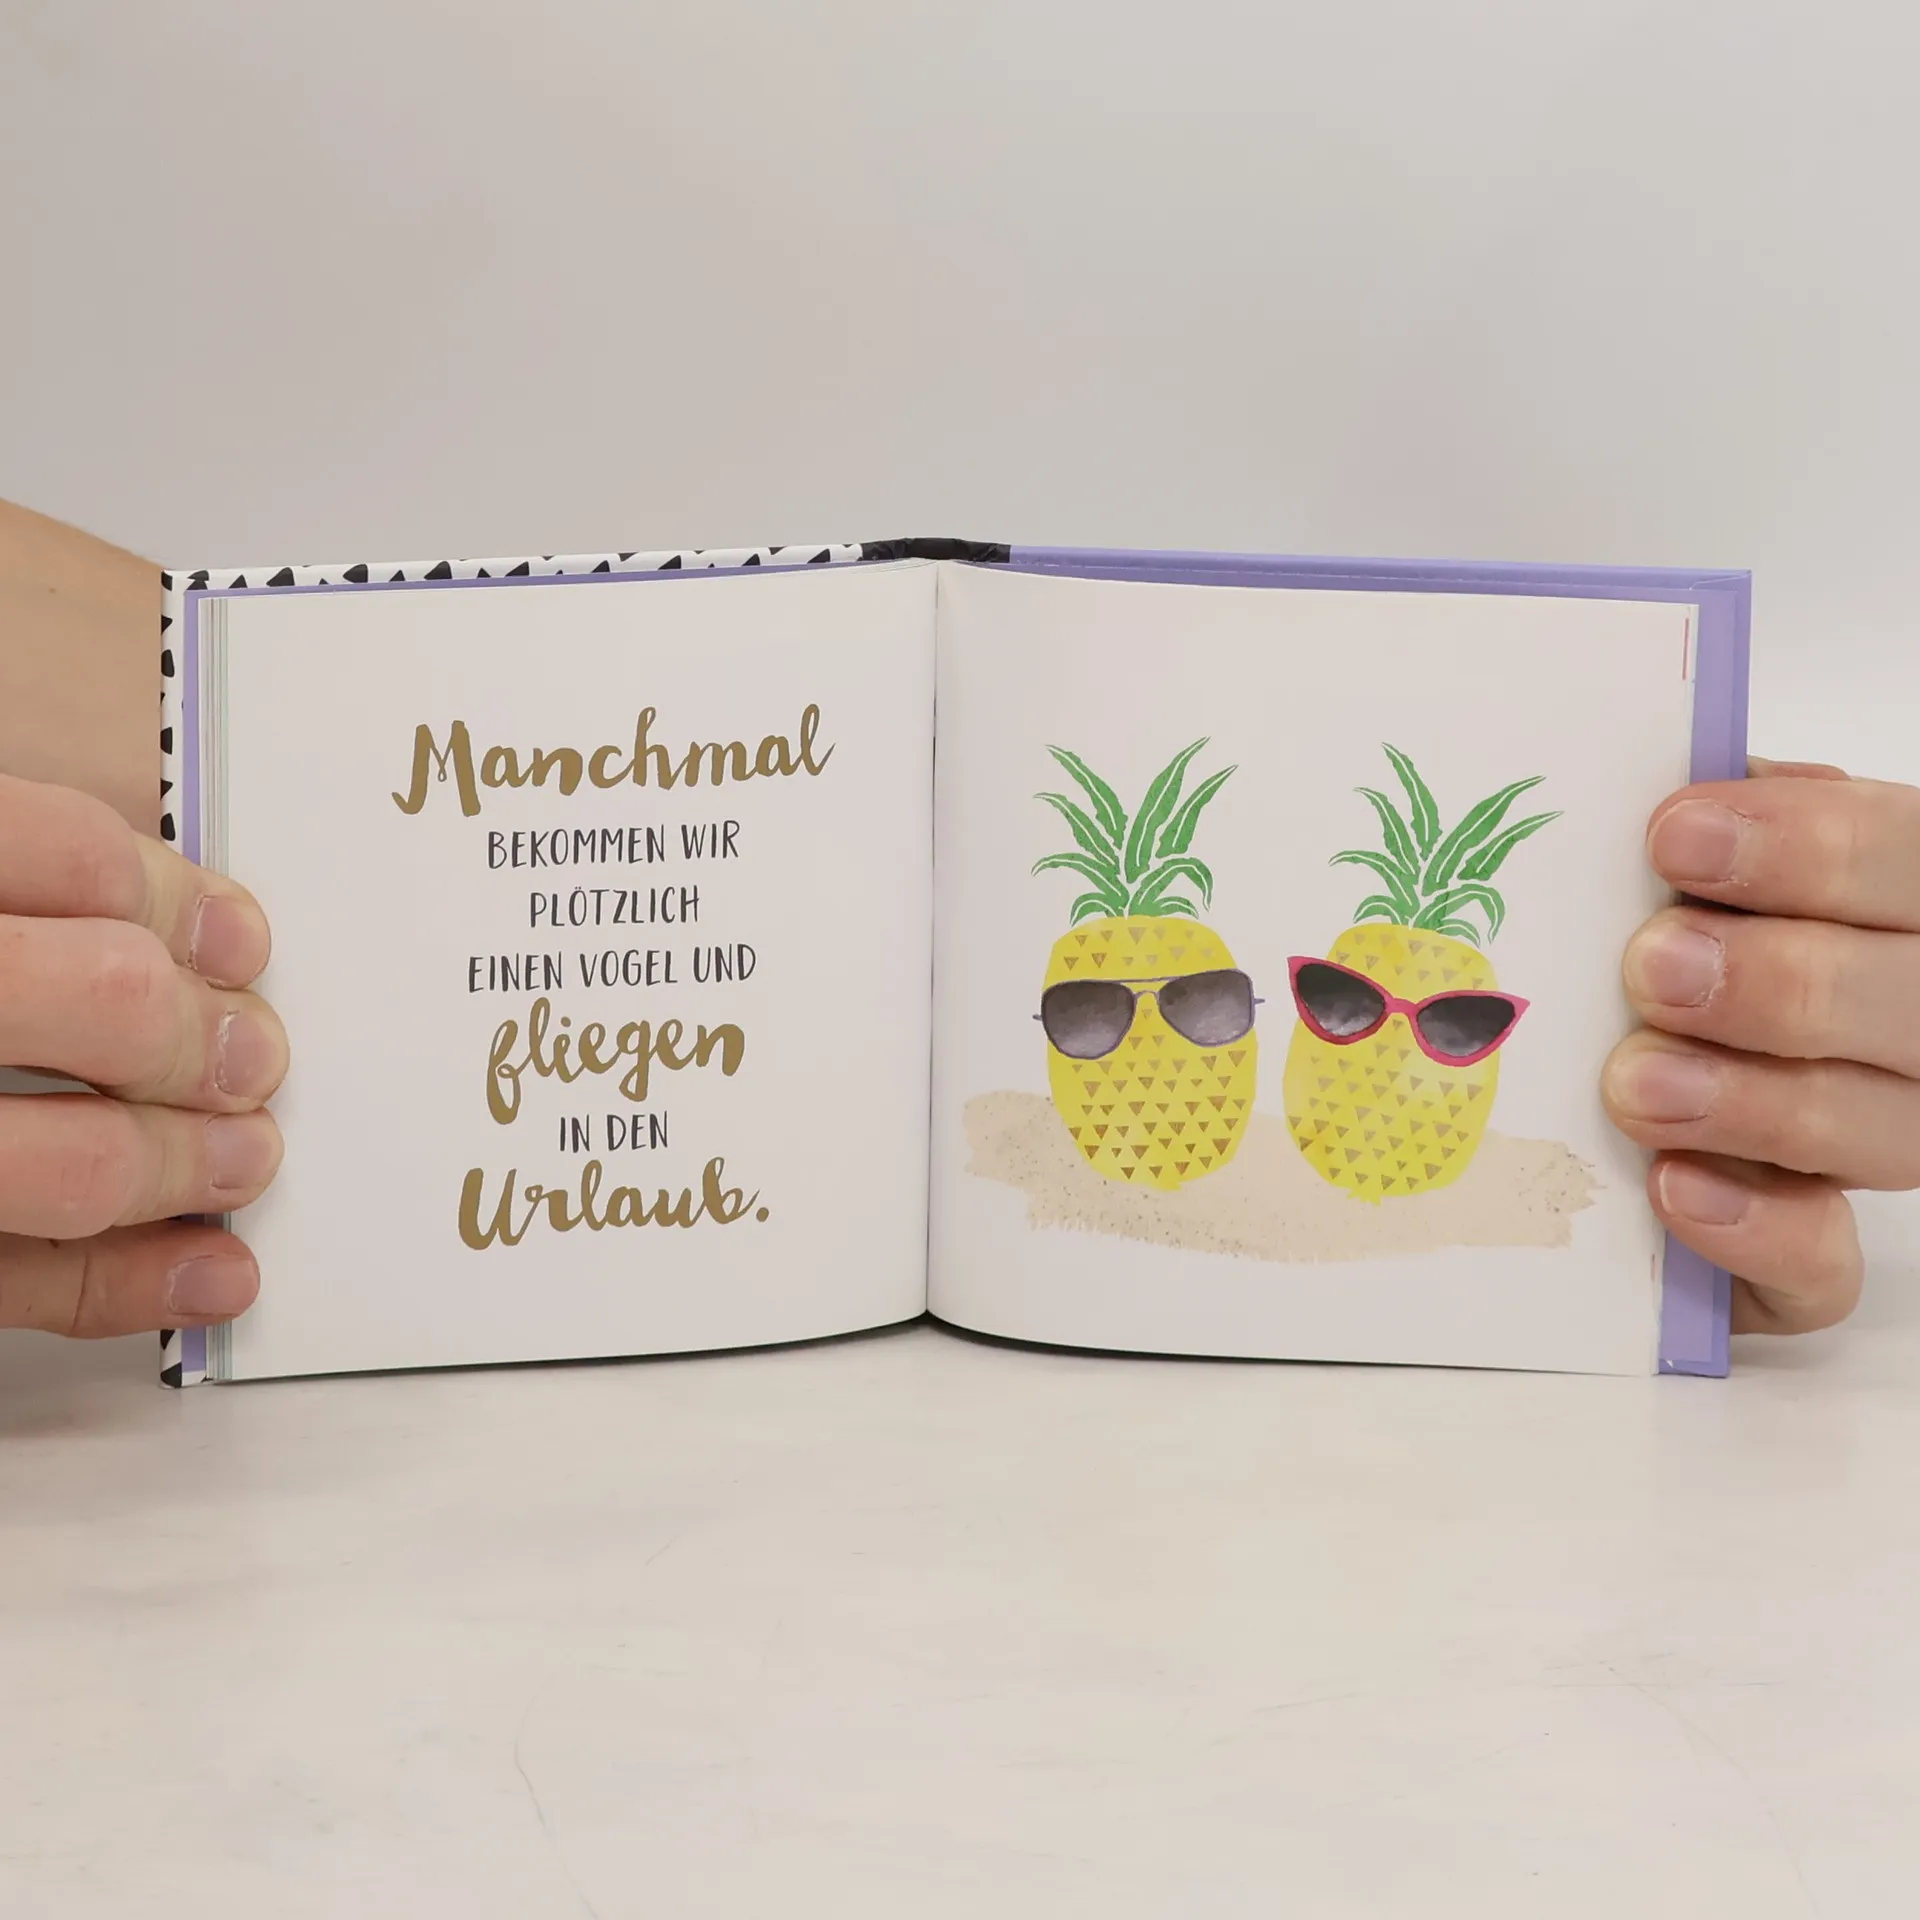 Manchmal
BEKOMMEN WIR
PLÖTZLICH
EINEN VOGEL UND
fliegen
IN DEN
Urlaub.